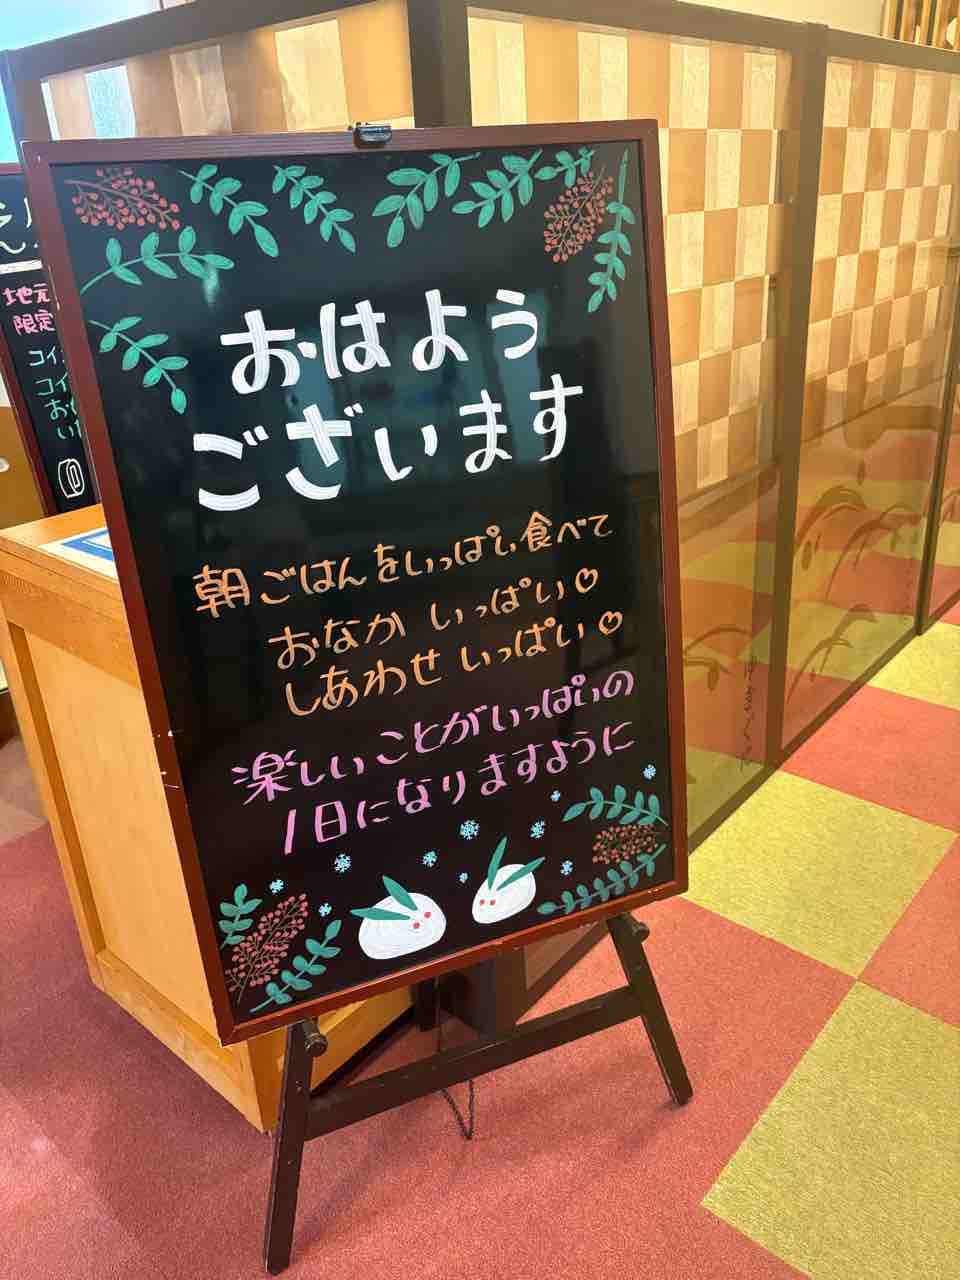 おはよう
ございます
朝ごはんをいっぱい食べて
おなか いっぱい♡
しあわせ いっぱい♡
楽しいことがいっぱいの
1日になりますように
地元
限定
コイ
コイ